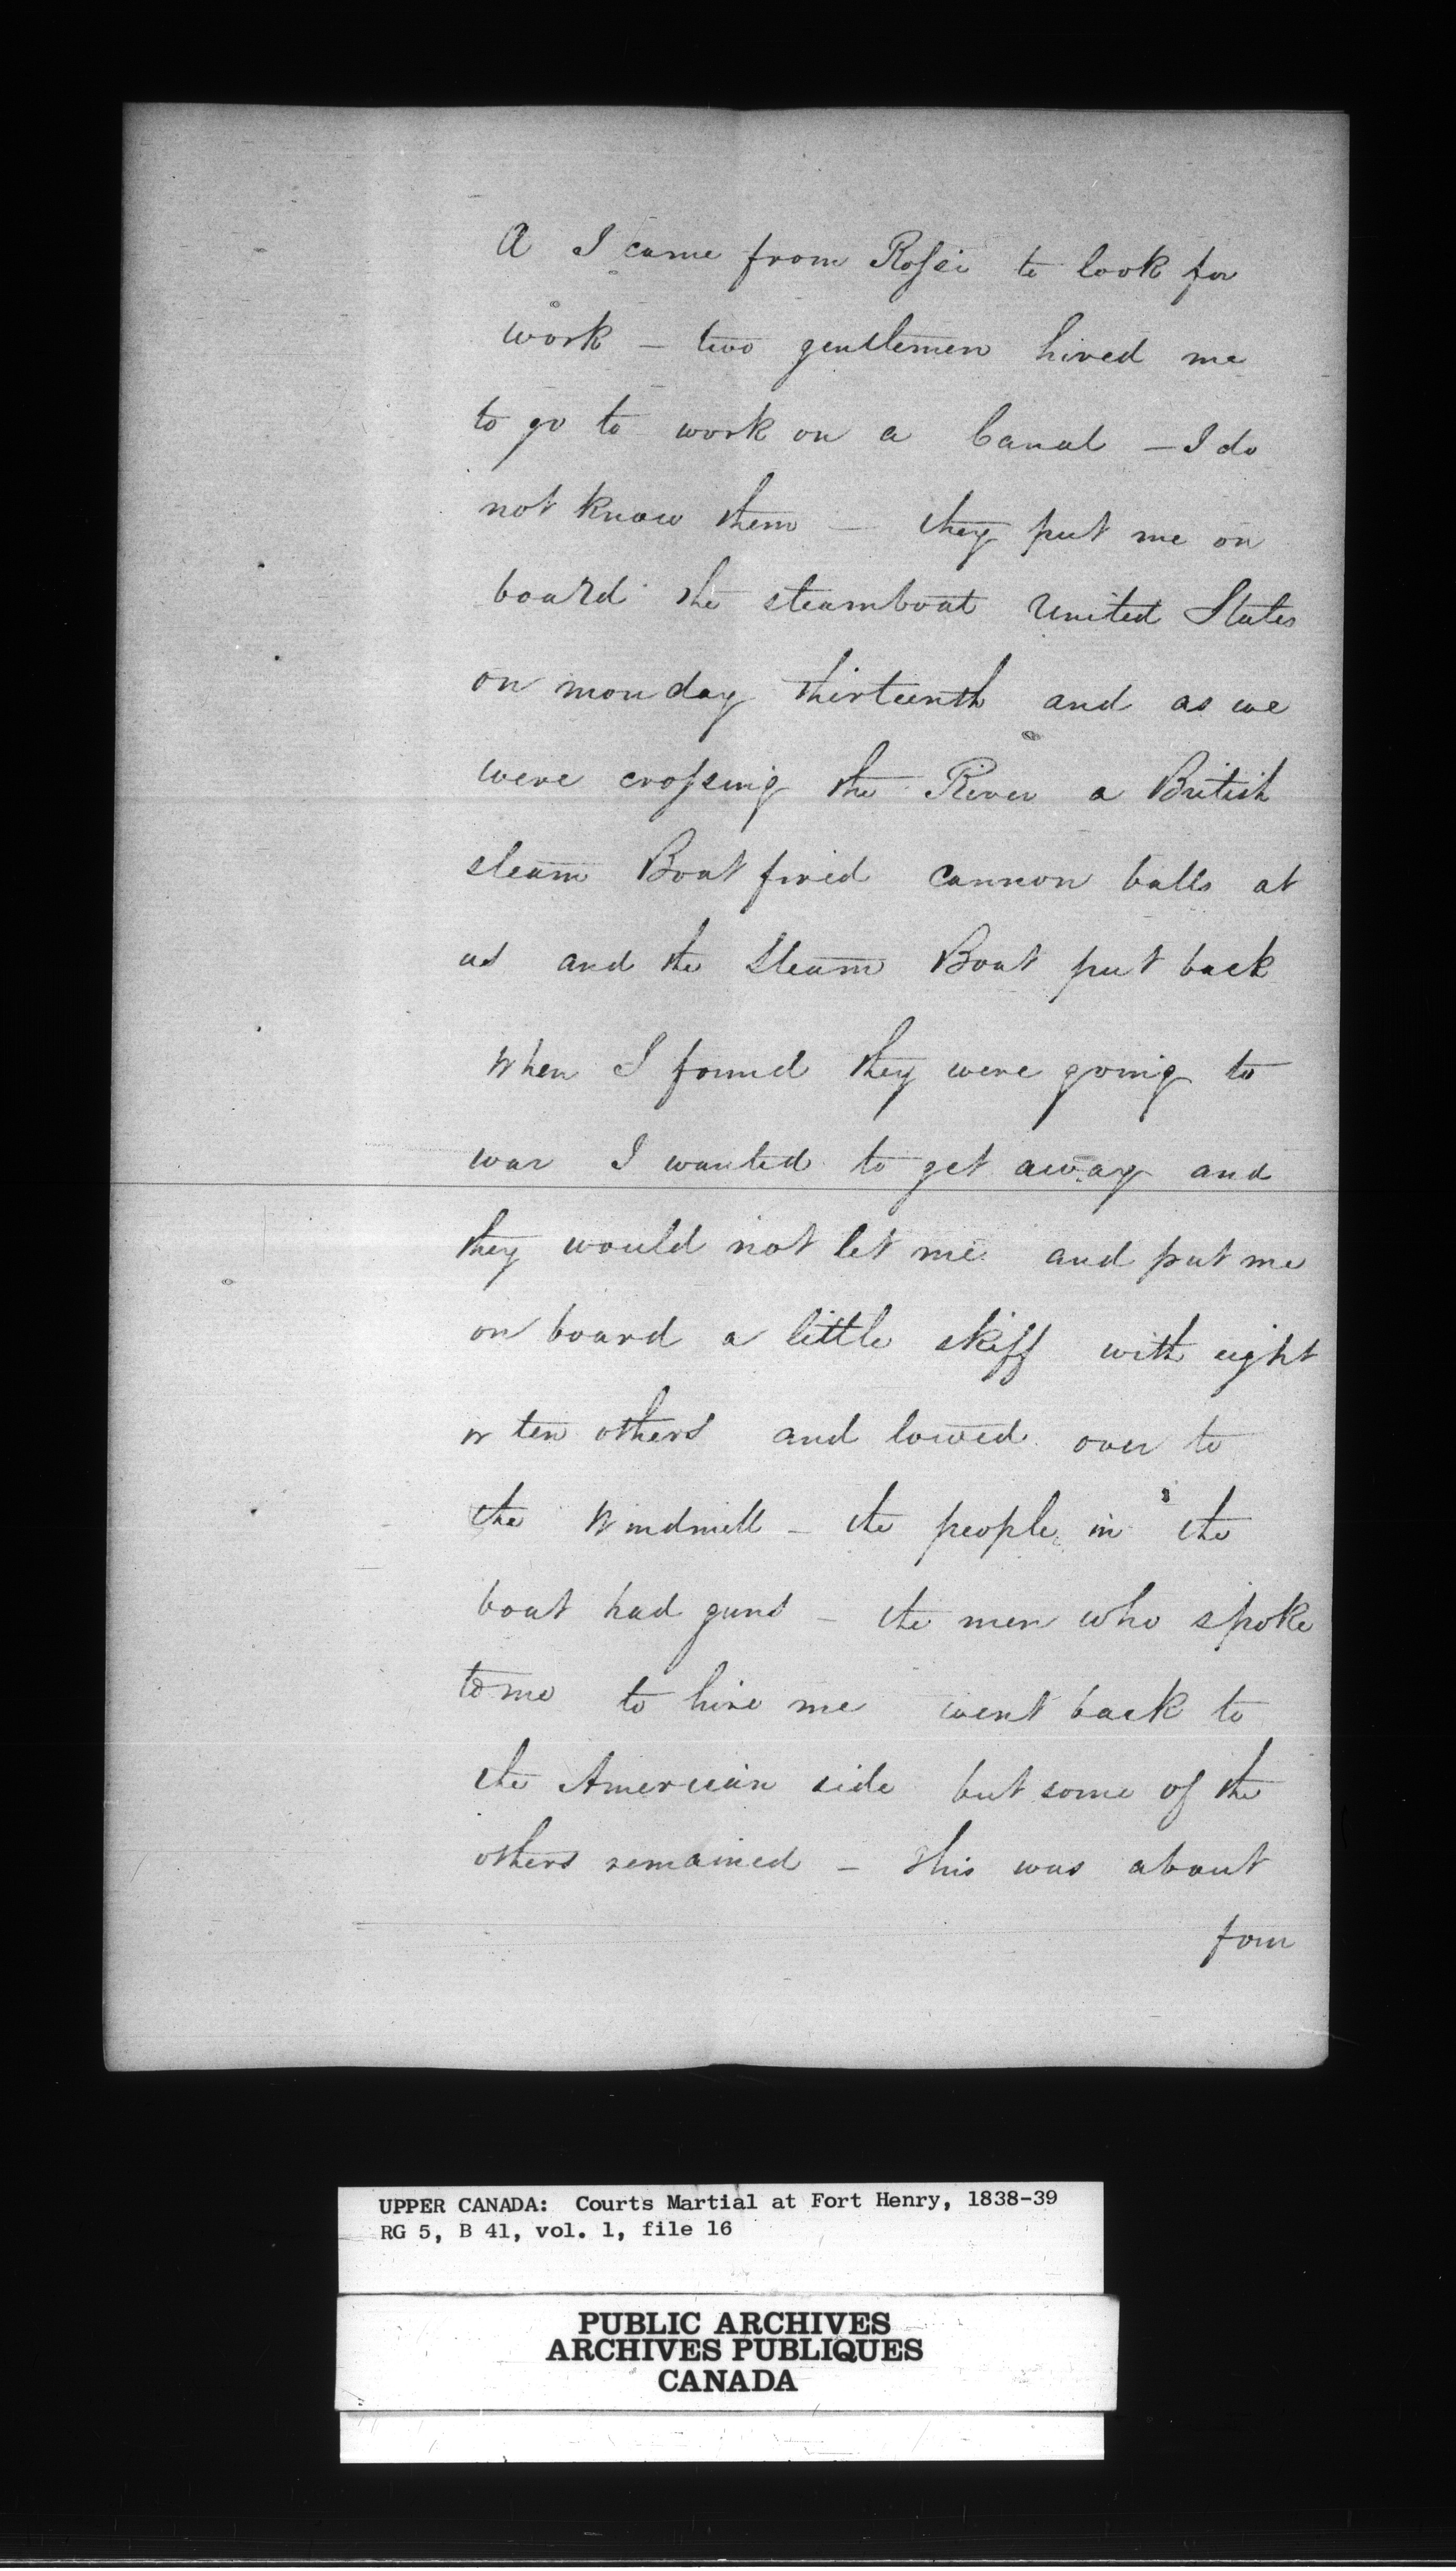 A I came from Rossie to look for
work – two gentlemen hired me
to go to work on a Canal – I do
not know them – they put me on
board the steamboat United States
on monday thirteenth and as we
were crossing the River a British
steam Boat fired cannon balls at
us and the Steam Boat put back
When I found they were going to
war I wanted to get away and
they would not let me and put me
on board a little skiff with eight
or ten others and towed over to
the Windmill – the people in the
boat had guns – the men who spoke
to me to hire me went back to
the American side but some of the
others remained – this was about
four
UPPER CANADA: Courts Martial at Fort Henry, 1838-39
RG 5, B 41, vol. 1, file 16
PUBLIC ARCHIVES
ARCHIVES PUBLIQUES
CANADA